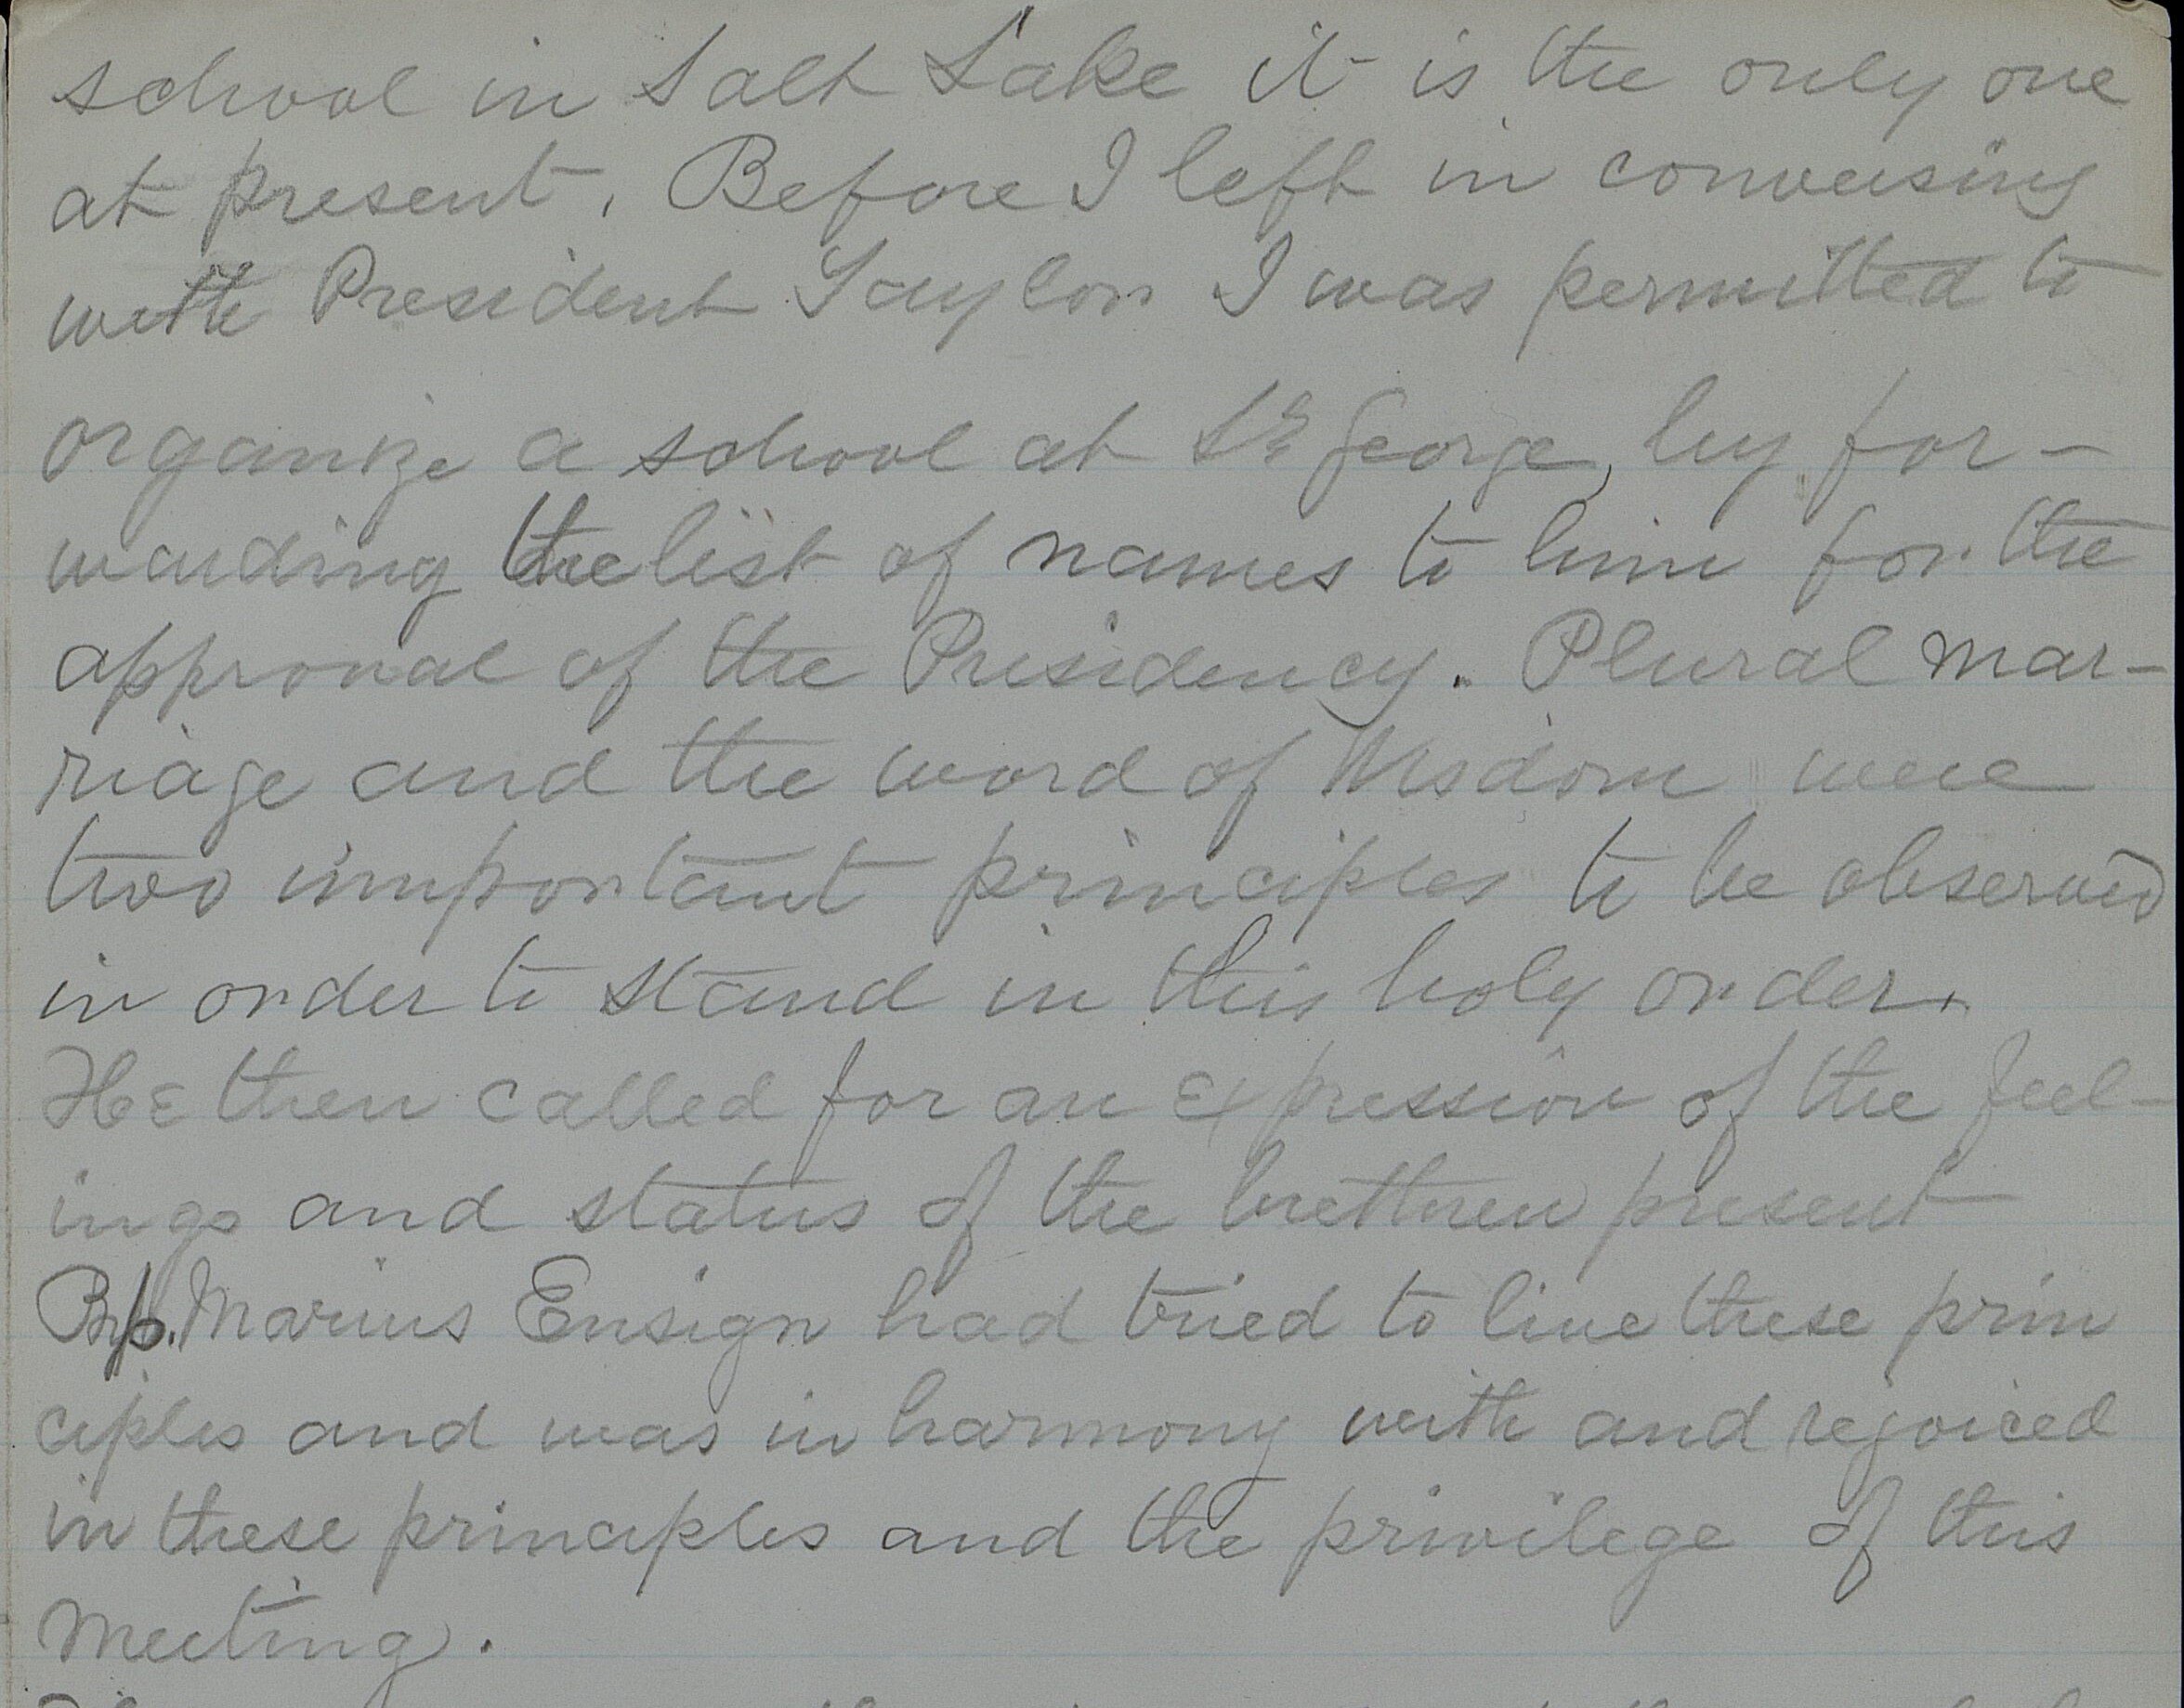 school in Salt Lake it is the only one
at present. Before I left in conversing
with President Taylor I was permitted to
organize a school at St George, by for-
warding the list of names to him for the
approval of the Presidency. Plural mar-
riage and the word of Wisdom were
two important principles to be observed
in order to stand in this holy order.
He then called for an expression of the feel-
ings and status of the brethren present
Bp. Marius Ensign had tried to live these prin
ciples and was in harmony with and rejoiced
in these principles and the privilege of this
meeting.